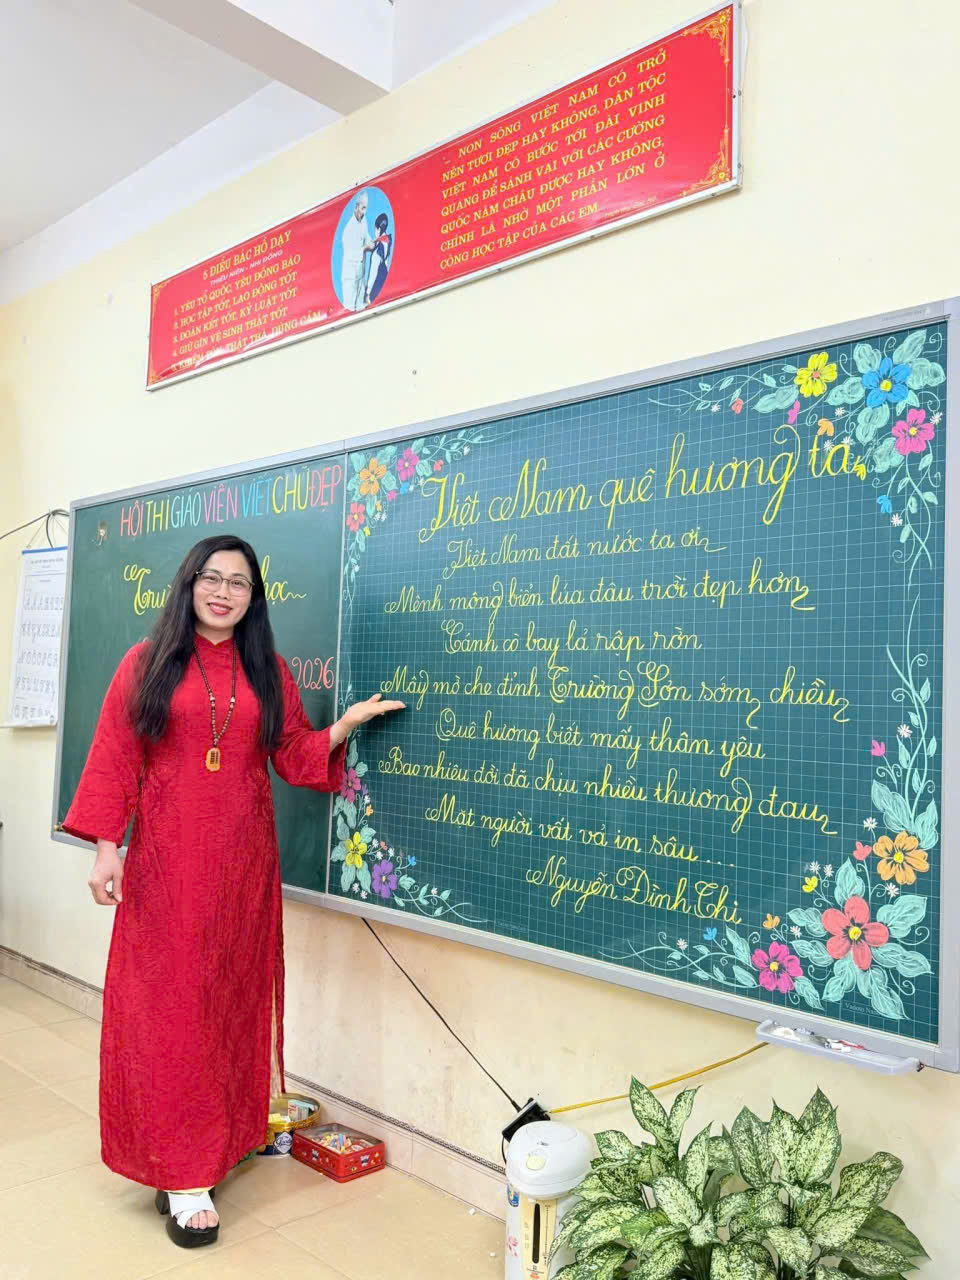 NON SÔNG VIỆT NAM CÓ TRỞ
NÊN TƯƠI ĐẸP HAY KHÔNG, DÂN TỘC
VIỆT NAM CÓ BƯỚC TỚI ĐÀI VINH
QUANG ĐỂ SÁNH VAI VỚI CÁC CƯỜNG
QUỐC NĂM CHÂU ĐƯỢC HAY KHÔNG,
CHÍNH LÀ NHỜ MỘT PHẦN LỚN Ở
CÔNG HỌC TẬP CỦA CÁC EM
5 ĐIỀU BÁC HỒ DẠY
THIẾU NIÊN - NHI ĐỒNG
1. YÊU TỔ QUỐC, YÊU ĐỒNG BÀO
2. HỌC TẬP TỐT, LAO ĐỘNG TỐT
3. ĐOÀN KẾT TỐT, KỶ LUẬT TỐT
4. GIỮ GÌN VỆ SINH THẬT TỐT
5. KHIÊM TỐN, THẬT THÀ, DŨNG CẢM
HỘI THI GIÁO VIÊN VIẾT CHỮ ĐẸP
2026
Việt Nam quê hương ta
Việt Nam đất nước ta ơi
Mênh mông biển lúa đâu trời đẹp hơn
Cánh cò bay lả rập rờn
Mây mờ che đỉnh Trường Sơn sớm chiều
Quê hương biết mấy thân yêu
Bao nhiêu đời đã chịu nhiều thương đau
Mặt người vất vả in sâu ...
Nguyễn Đình Thi